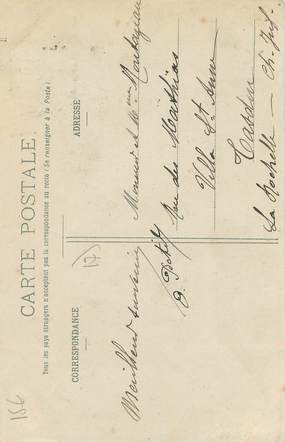 CARTE POSTALE
Tous les pays étrangers n'acceptent pas la correspondance au recto (Se renseigner à la Poste)
CORRESPONDANCE
ADRESSE
(17)
Meilleurs souvenirs
Monsieur et Mme
Rue des
Villa Ste Anne
Tasdon
La Rochelle — Ch. Inf.
156